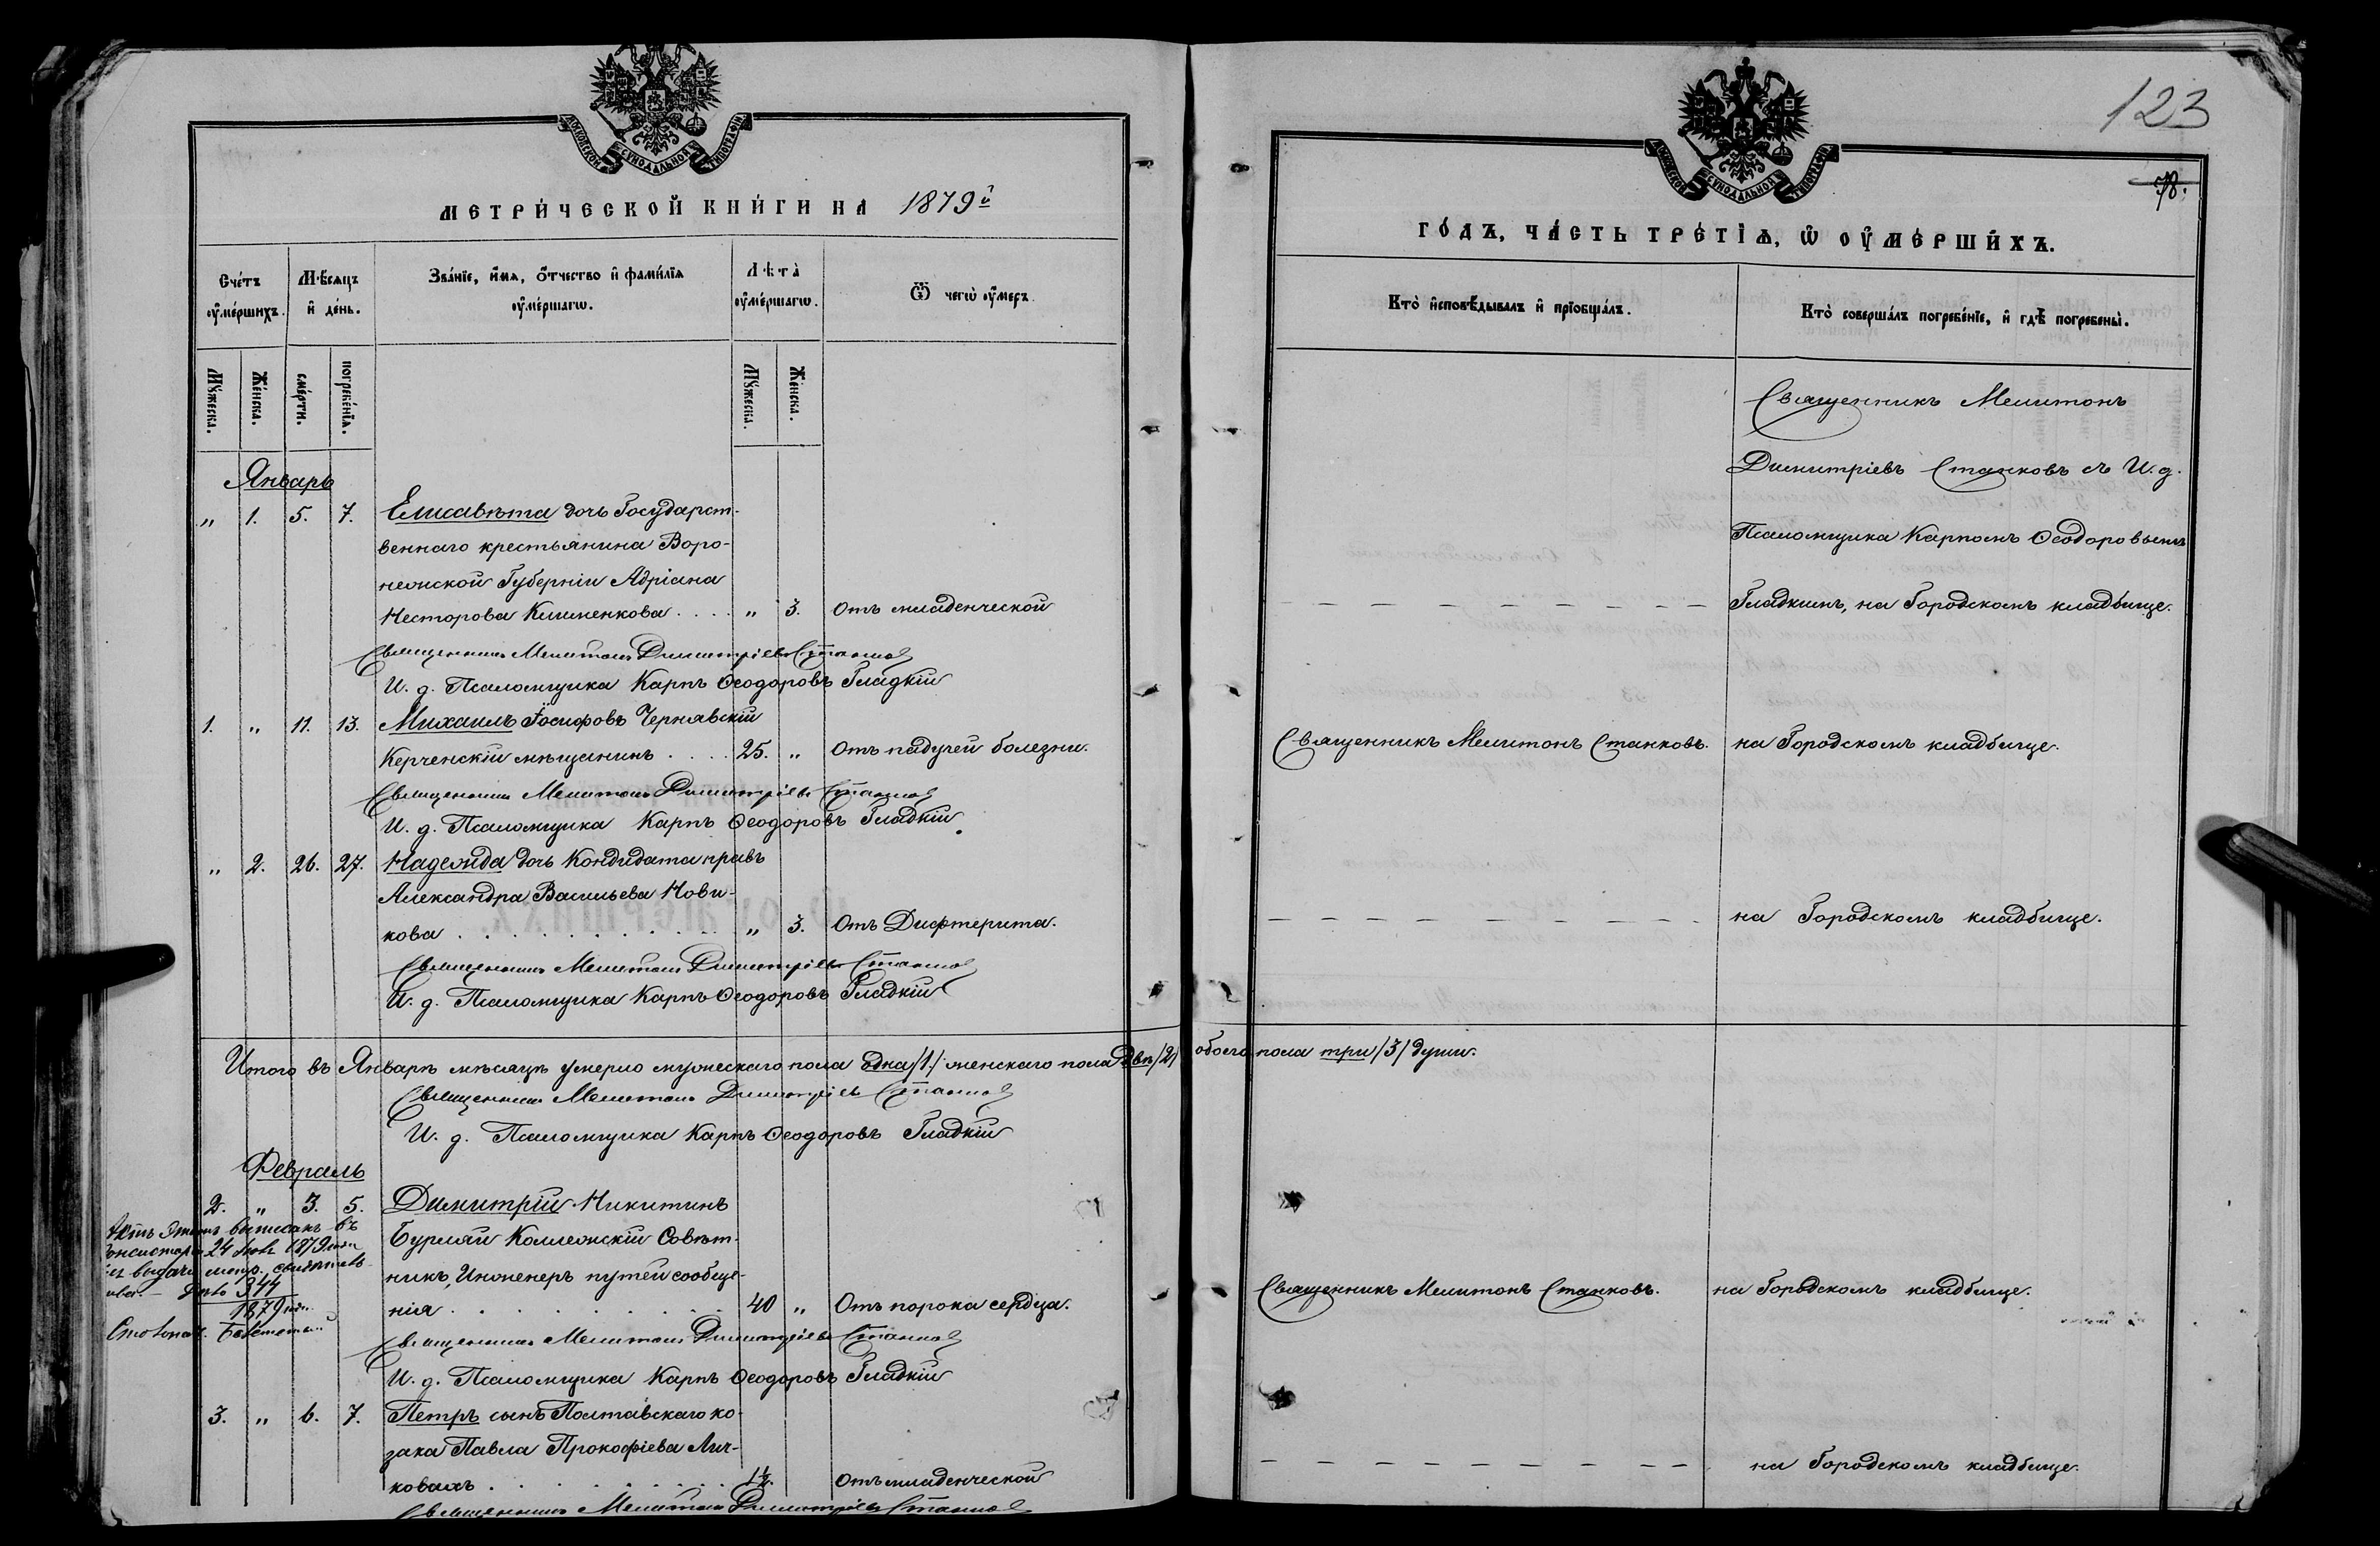 МОСКОВСКОЙ СѴНОДАЛЬНОЙ ТИПОГРАФІИ
МЕТРИ́ЧЕСКОЙ КНИ́ГИ НА 1879й
Сче́тъ ᲂу҆ме́ршихъ.
Мѣ́сяцъ и҆ де́нь.
Зва́нїе, и҆́мя, ѻ҆́тчество и҆ фамі́лїя ᲂу҆ме́ршагѡ.
Лѣта̀ ᲂу҆ме́ршагѡ.
Ѿ чегѡ̀ ᲂу҆́меръ.
Мꙋ́жеска.
Же́нска.
сме́рти.
погребе́нїѧ.
Мꙋ́жеска.
Же́нска.
Январь
„ 1. 5. 7. Елисавѣта дочь Государст-
веннаго крестьянина Воро-
нежской Губерніи Адріана
Несторова Клименкова . . . . „ 3. Отъ младенческой
Священникъ Мелитонъ Димитріевъ Станковъ
И. д. Псаломщика Карпъ Ѳеодоровъ Гладкій
1. „ 11. 13. Михаилъ Іосифовъ Чернявскій
Керченскій мѣщанинъ . . . . 25. „ Отъ падучей болезни.
Священникъ Мелитонъ Димитріевъ Станковъ
И. д. Псаломщика Карпъ Ѳеодоровъ Гладкій
„ 2. 26. 27. Надежда дочь Кондидата правъ
Александра Васильева Нови-
кова . . . . . . . . . . „ 3. Отъ Дифтерита.
Священникъ Мелитонъ Димитріевъ Станковъ
И. д. Псаломщика Карпъ Ѳеодоровъ Гладкій
Итого въ Январѣ мѣсяцѣ умерло мужескаго пола одна /1./ женскаго пола двѣ /2/ обоего пола три /3/ души.
Священникъ Мелитонъ Димитріевъ Станковъ
И. д. Псаломщика Карпъ Ѳеодоровъ Гладкій
Февраль
2. „ 3. 5. Димитрій Никитинъ
Бурляй Коллежскій Совѣт-
никъ, Инженеръ путей сообще-
нія . . . . . . . . . . 40 „ Отъ порока сердца.
Актъ этотъ выписанъ въ
24 1879 года
выдачи метр. свидѣтель-
ства — Дѣло 344
1879 года
Столонач.
Священникъ Мелитонъ Димитріевъ Станковъ
И. д. Псаломщика Карпъ Ѳеодоровъ Гладкій
3. „ 6. 7. Петръ сынъ Полтавскаго ко-
зака Павла Прокофіева Лич-
. . . . . . . . . 1½. Отъ младенческой
Священникъ Мелитонъ Димитріевъ Станковъ
123
78.
МОСКОВСКОЙ СѴНОДАЛЬНОЙ ТИПОГРАФІИ
ГО́ДЪ, ЧА́СТЬ ТРЕ́ТІѦ, Ѡ҆ ОУ҆МЕ́РШИХЪ.
Кто̀ и҆сповѣ́дывалъ и҆ прїобща́лъ.
Кто̀ соверша́лъ погребе́нїе, и҆ гдѣ̀ погребены̀.
Священникъ Мелитонъ
Димитріевъ Станковъ съ И. д.
Псаломщика Карпомъ Ѳеодоровымъ
— — — — — — — — — Гладкимъ, на Городскомъ кладбище.
Священникъ Мелитонъ Станковъ. на Городскомъ кладбище.
— — — — — — — — — на Городскомъ кладбище.
Священникъ Мелитонъ Станковъ. на Городскомъ кладбище.
— — — — — — — — — на Городскомъ кладбище.